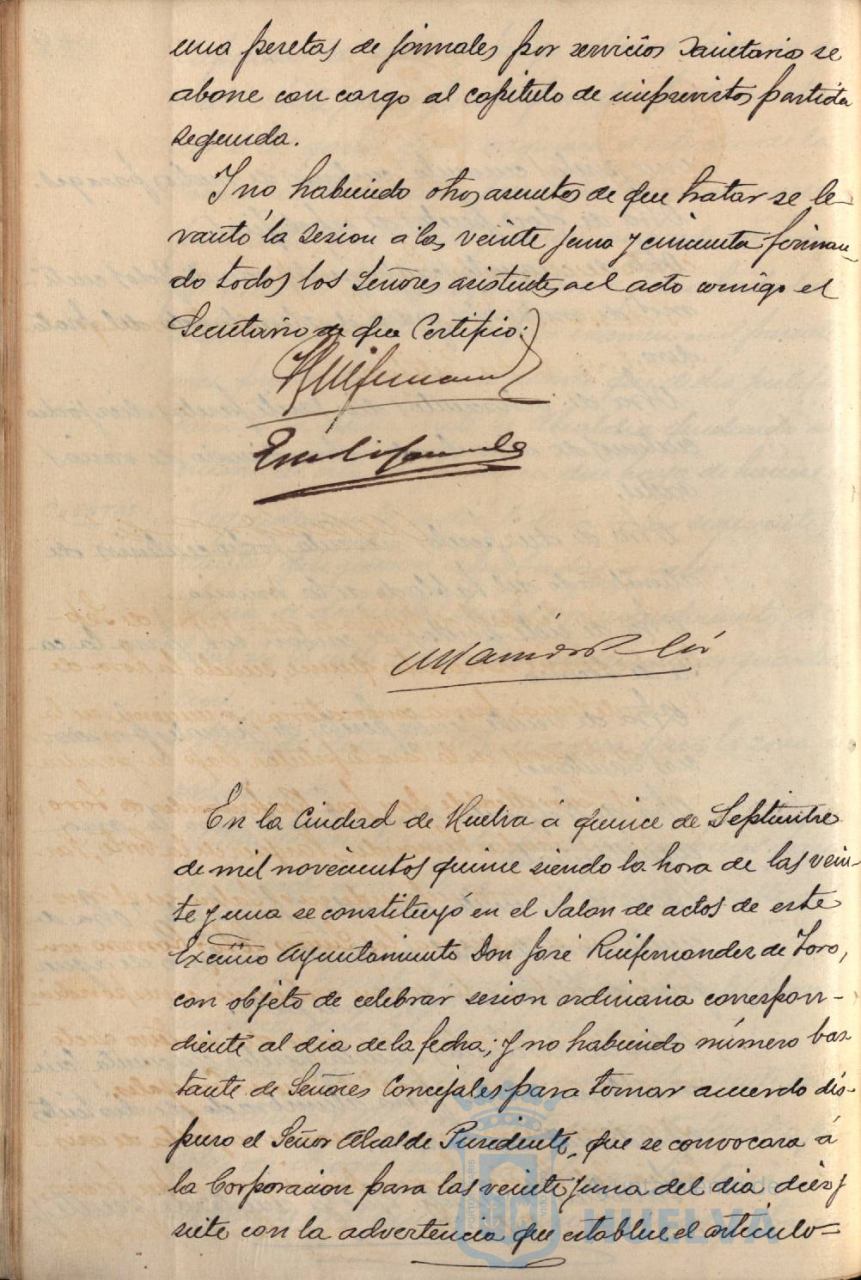 una pesetas de jornales por servicios Sanitarios se
abone con cargo al capitulo de imprevistos partida
segunda.
Y no habiendo otros asuntos de que tratar se le-
vantó la sesion a las veinte y una y cincuenta firman-
do todos los Señores asistentes al acto comigo el
Secretario de que Certifico:
En la Ciudad de Huelva á quince de Septiembre
de mil novecientos quince siendo la hora de las vein-
te y una se constituyó en el Salon de actos de este
Excmo Ayuntamiento Don José Ruifernandez de Toro,
con objeto de celebrar sesion ordinaria correspon-
diente al dia de la fecha; y no habiendo número bas-
tante de Señores Concejales para tomar acuerdo dis-
puso el Señor Alcalde Presidente, que se convocara á
la Corporacion para las veinte y una del dia diez y
siete con la advertencia que establece el artículo
HUELVA